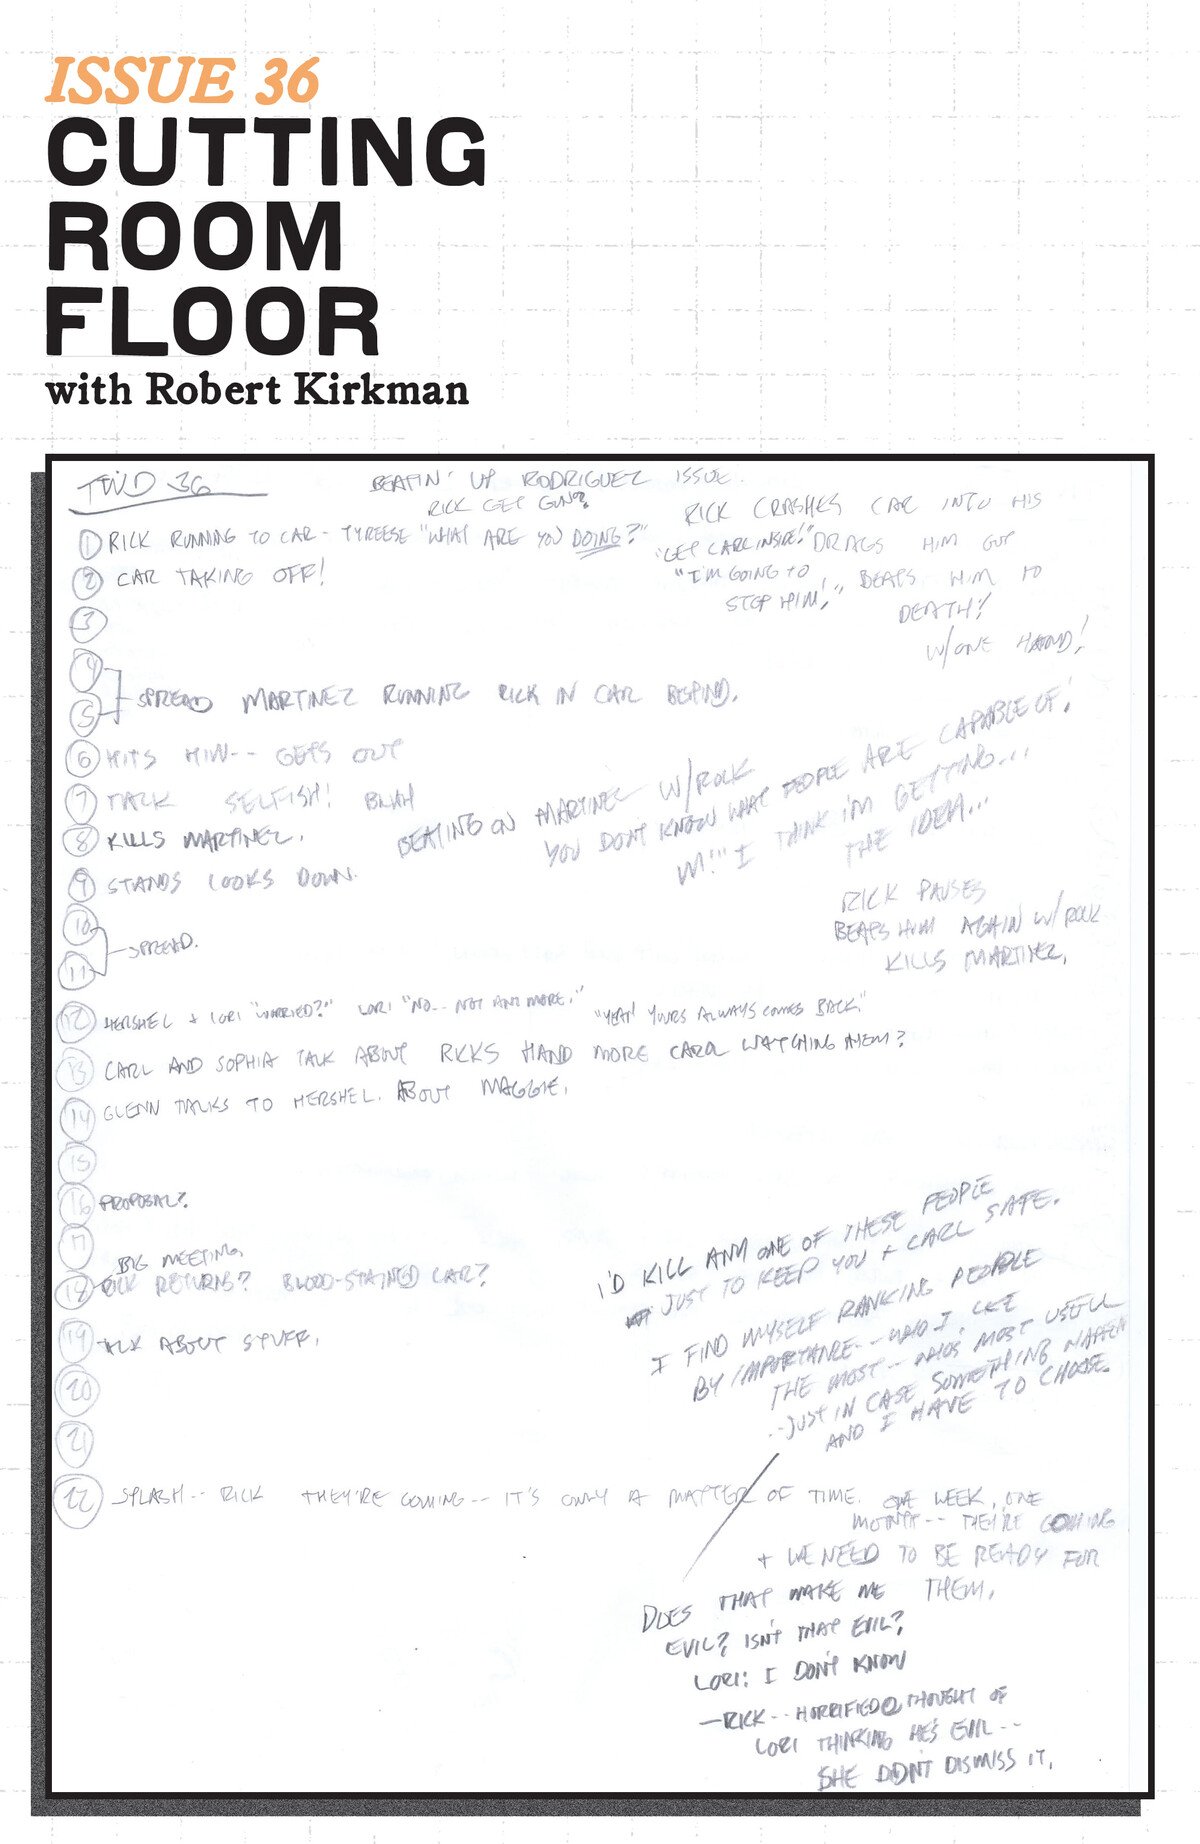 ISSUE 36
CUTTING
ROOM
FLOOR
with Robert Kirkman
TWD 36
BEATIN' UP RODRIGUEZ ISSUE.
RICK GET GUN?
RICK CRASHES CAR INTO HIS
DRAGS HIM OUT
BEATS HIM TO
DEATH!
W/ONE HAND!
1 RICK RUNNING TO CAR - TYREESE "WHAT ARE YOU DOING?"
"GET CARL INSIDE!"
"I'M GOING TO
STOP HIM!"
2 CAR TAKING OFF!
3
4
5
SPREAD MARTINEZ RUNNING RICK IN CAR BEHIND.
6 HITS HIM-- GETS OUT
7 TALK SELFISH! BLAH
8 KILLS MARTINEZ.
BEATING ON MARTINEZ W/ROCK
YOU DON'T KNOW WHAT PEOPLE ARE CAPABLE OF!
I THINK I'M GETTING...
THE IDEA...
9 STANDS LOOKS DOWN.
RICK PAUSES
BEATS HIM AGAIN W/ROCK
KILLS MARTINEZ.
10
11
SPREAD.
12 HERSHEL + LORI "WORRIED?" LORI "NO... NOT ANYMORE." "YEAH YOURS ALWAYS COMES BACK."
13 CARL AND SOPHIA TALK ABOUT RICKS HAND MORE CAROL WATCHING THEM?
14 GLENN TALKS TO HERSHEL. ABOUT MAGGIE.
15
16 PROPOSAL?
17
BIG MEETING.
18 RICK RETURNS? BLOOD-STAINED CAR?
19 TALK ABOUT STUFF.
20
21
I'D KILL ANY ONE OF THESE PEOPLE
JUST TO KEEP YOU + CARL SAFE.
I FIND MYSELF RANKING PEOPLE
BY IMPORTANCE-- WHO I LIKE
THE MOST-- WHO'S MOST USEFULL
--JUST IN CASE SOMETHING HAPPEN
AND I HAVE TO CHOOSE.
22 SPLASH-- RICK THEY'RE COMING-- IT'S ONLY A MATTER OF TIME. ONE WEEK, ONE
MONTH-- THEY'RE COMING
+ WE NEED TO BE READY FOR
THEM.
DOES THAT MAKE ME
EVIL? ISN'T THAT EVIL?
LORI: I DON'T KNOW
—RICK-- HORRIFIED @ THOUGHT OF
LORI THINKING HE'S EVIL--
SHE DIDN'T DISMISS IT.